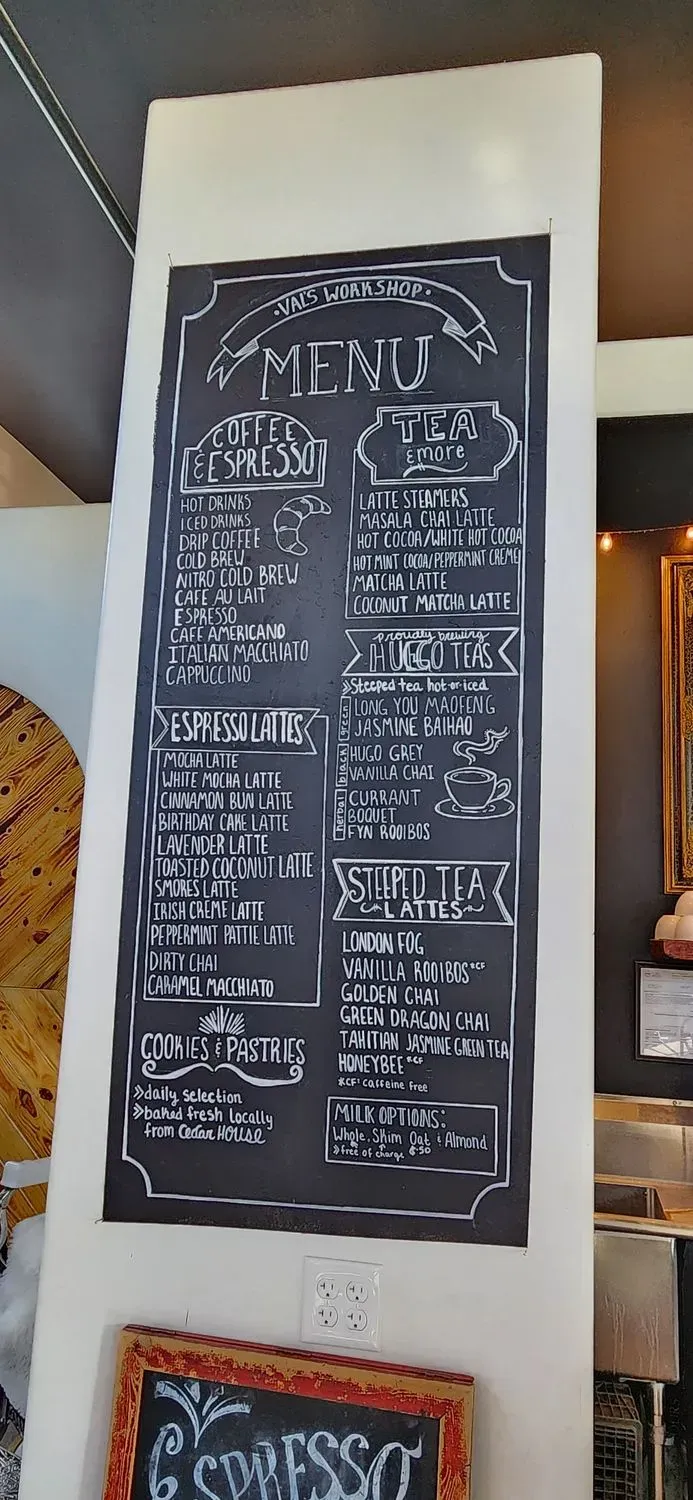 ·VAL'S WORKSHOP·
MENU
COFFEE
& ESPRESSO
HOT DRINKS
ICED DRINKS
DRIP COFFEE
COLD BREW
NITRO COLD BREW
CAFE AU LAIT
ESPRESSO
CAFE AMERICANO
ITALIAN MACCHIATO
CAPPUCCINO
ESPRESSO LATTES
MOCHA LATTE
WHITE MOCHA LATTE
CINNAMON BUN LATTE
BIRTHDAY CAKE LATTE
LAVENDER LATTE
TOASTED COCONUT LATTE
SMORES LATTE
IRISH CREME LATTE
PEPPERMINT PATTIE LATTE
DIRTY CHAI
CARAMEL MACCHIATO
COOKIES & PASTRIES
»daily selection
»baked fresh locally
from Cedar HOUSE
TEA
& more
LATTE STEAMERS
MASALA CHAI LATTE
HOT COCOA/WHITE HOT COCOA
HOT MINT COCOA/PEPPERMINT CREME
MATCHA LATTE
COCONUT MATCHA LATTE
proudly brewing
HUGO TEAS
»Steeped tea hot or iced
green
LONG YOU MAOFENG
JASMINE BAIHAO
black
HUGO GREY
VANILLA CHAI
herbal
CURRANT
BOQUET
FYN ROOIBOS
STEEPED TEA
LATTES
LONDON FOG
VANILLA ROOIBOS *CF
GOLDEN CHAI
GREEN DRAGON CHAI
TAHITIAN JASMINE GREEN TEA
HONEYBEE *CF
*CF: caffeine free
MILK OPTIONS:
Whole, Skim Oat & Almond
»free of charge $.50
ESPRESSO